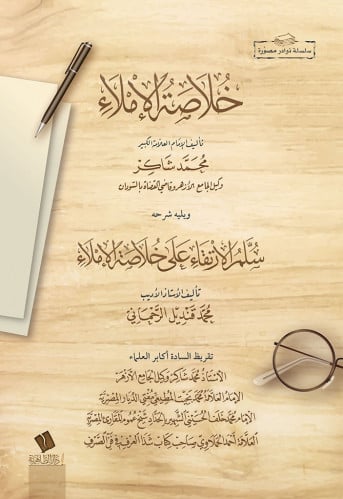 سلسلة نوادر مصورة
خُلَاصَةُ الإِمْلَاءِ
تأليف الإمام العلامة الكبير
مُحَمَّد شَاكِر
وكيل الجامع الأزهر وقاضي القضاة بالسودان
ويليه شرحه
سُلَّمُ الارْتِقَاءِ عَلَى خُلَاصَةِ الإِمْلَاءِ
تأليف الأستاذ الأديب
مُحَمَّد قِنْدِيل الرَّحْمَانِي
تقريظ السادة أكابر العلماء
الأستاذ محمد شاكر وكيل الجامع الأزهر
الإمام العلامة محمد بخيت المطيعي مفتي الديار المصرية
الإمام محمد خلف الحسيني الشهير بالحداد شيخ عموم المقارئ المصرية
العلامة أحمد الحملاوي صاحب كتاب شذا العرف في فن الصرف